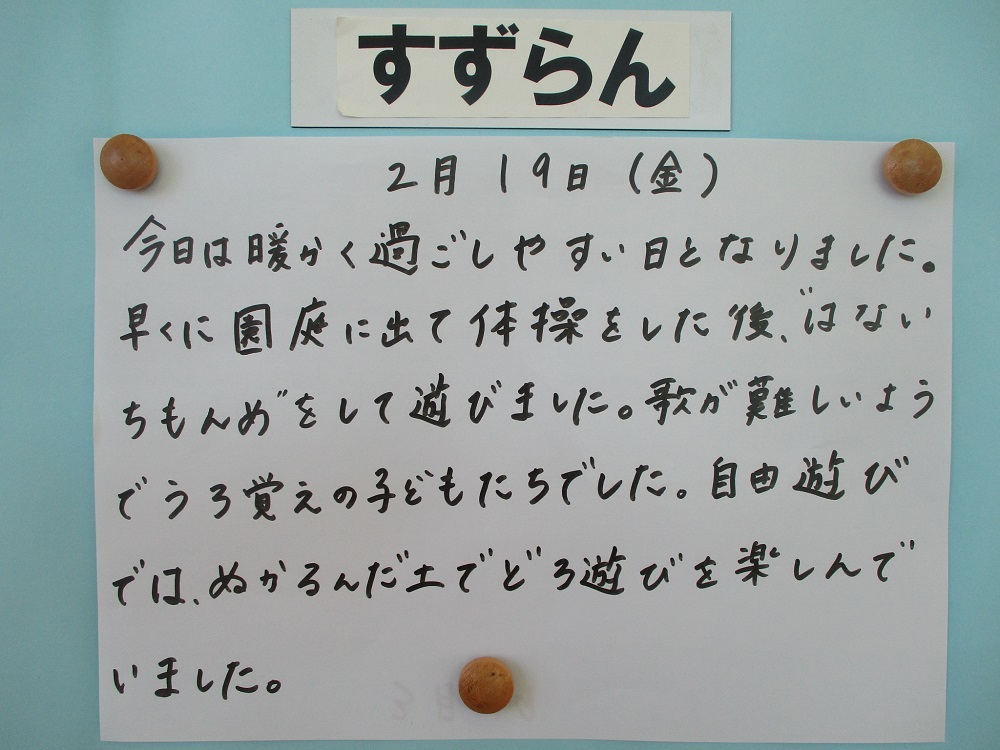 すずらん
2月19日(金)
今日は暖かく過ごしやすい日となりました。
早くに園庭に出て体操をした後、"はない
ちもんめ"をして遊びました。歌が難しいよう
でうろ覚えの子どもたちでした。自由遊び
では、ぬかるんだ土でどろ遊びを楽しんで
いました。